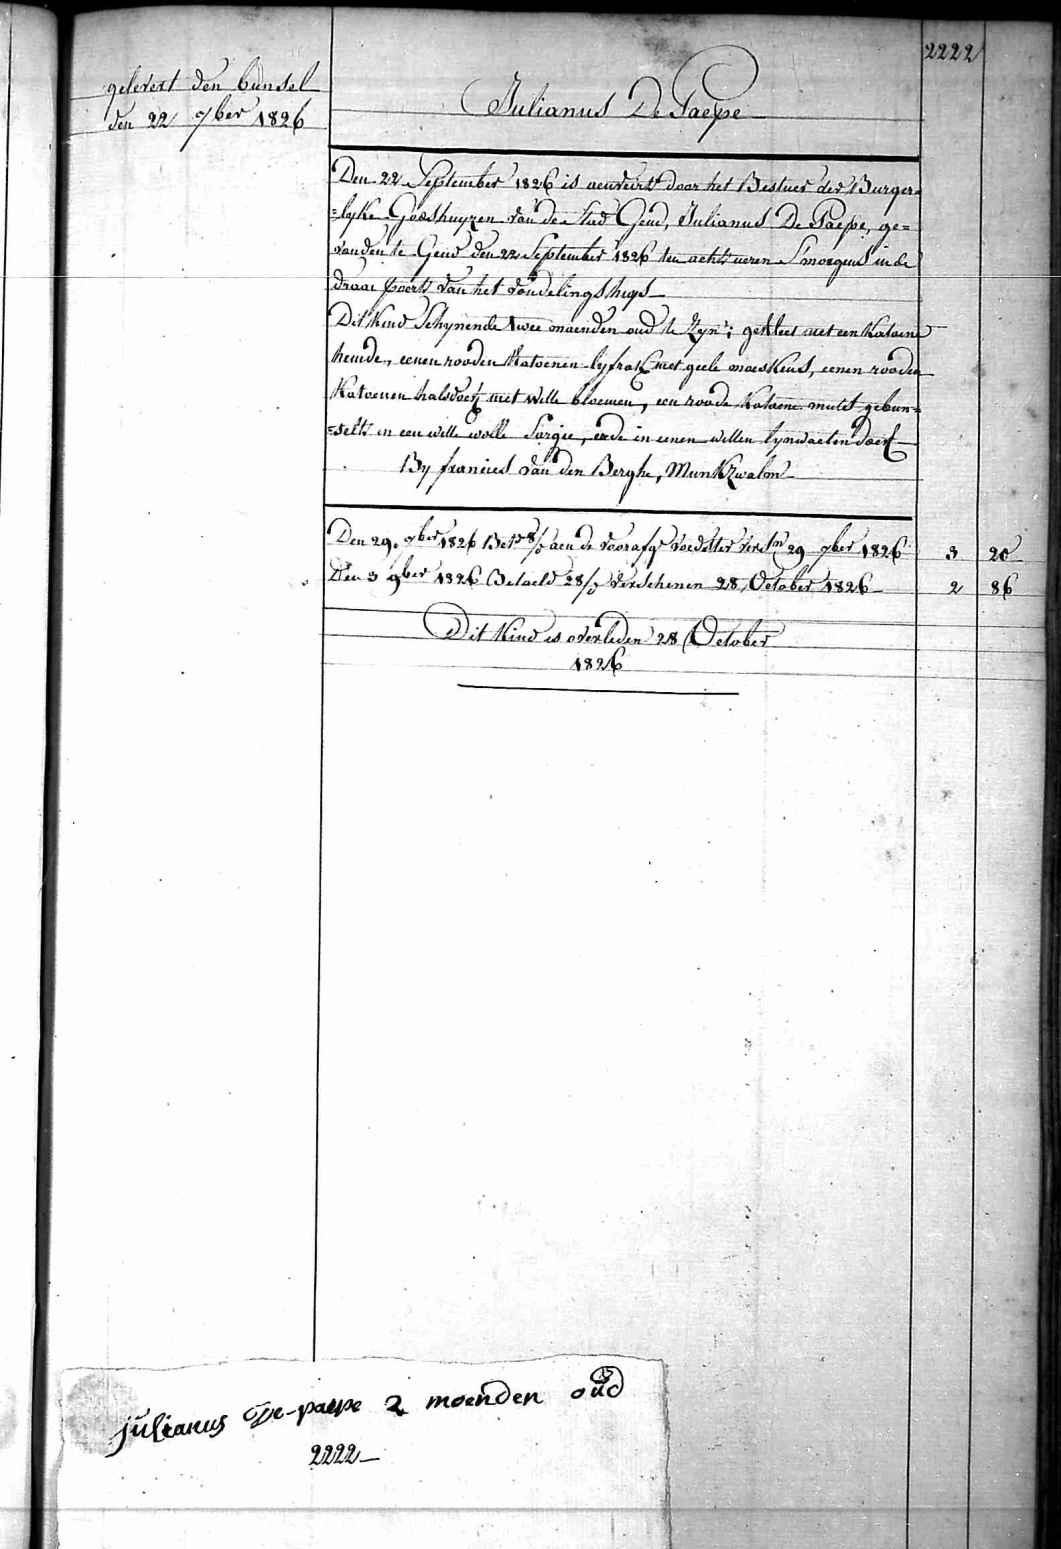 2222
gelevert den bunsel
den 22 7ber 1826
Julianus De Paepe
Den 22 September 1826 is aenveirt door het Bestuer der Burger=
=lyke Godshuyzen van de stad Gend, Julianus De Paepe, ge=
vonden te Gend den 22 September 1826 ten acht ueren S'morgens in de
draai poort van het vondelingshuys
Dit Kind Schynende twee maenden oud te Zyn; gekleet met een Katoene
hemde, eenen rooden Katoenen lyfrok met geele moeskens, eenen rooden
Katoenen halsdoek met witte bloemen, een roode Katoene muts gebun=
=selt in een witte wolle Sargie, ende in eenen witten lynwaeten doek
By francies van den Berghe, Munkzwalm
Den 29. 7ber 1826 Bet. 8/ aen de voorafge voedster verschn 29 7ber 1826 3 20
Den 3 9ber 1826 Betaeld 28/ verschenen 28 October 1826 2 86
Dit Kind is overleden 28 October
1826
julianus De-paepe 2 moenden oud
2222